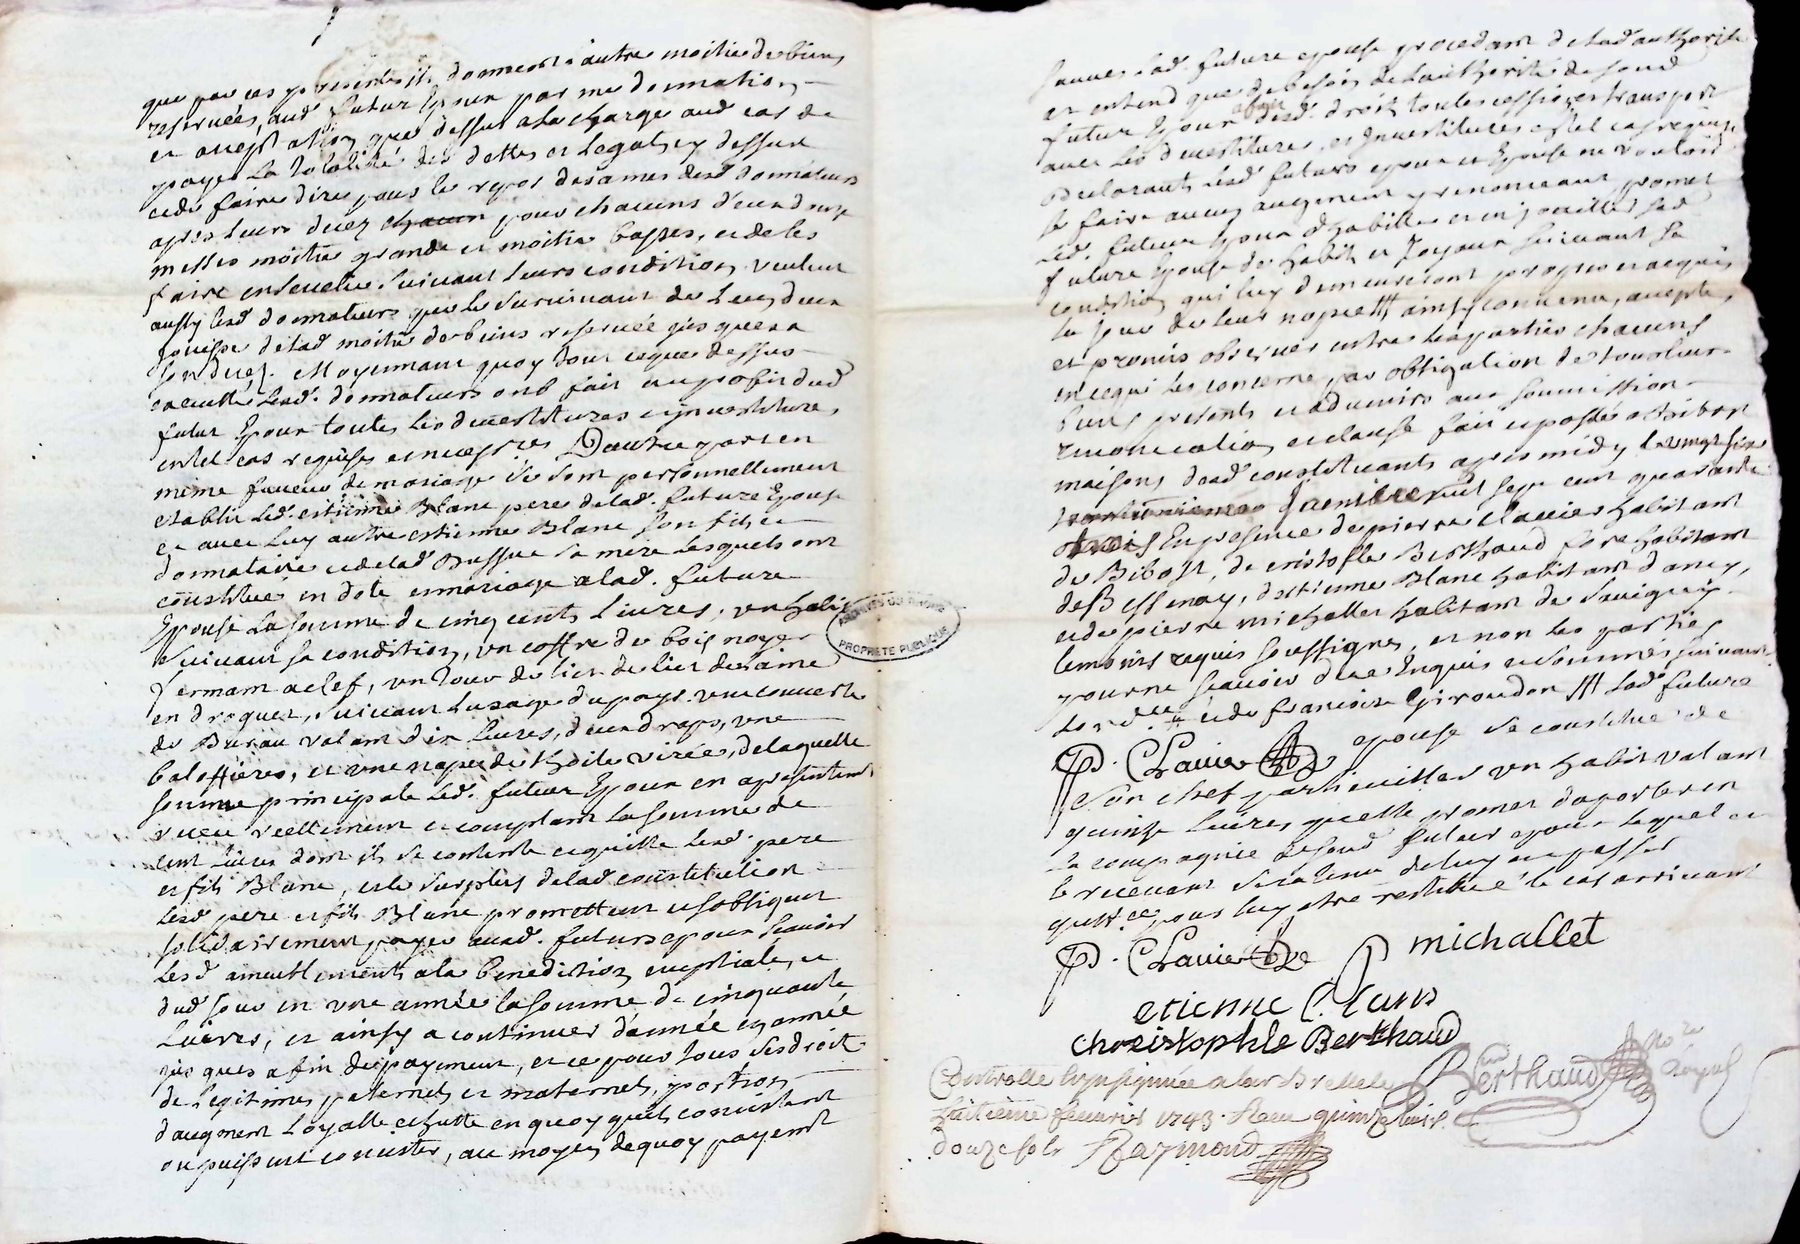 que par ces presentes ils donnent l'autre moitié de biens
reservées, aud. futur Epoux par me donnation
et acceptation que dessus a la charge aud cas de
payer La totalité des dettes et Legats cy dessus
et de faire dire pour le repos des ames desd donnateurs
apres Leurs decez chacun pour chacuns d'eux douze
messes moitié grande et moitié basses, et de les
faire ensevelir suivant Leurs condition, veulent
aussy lesd donnateurs que le survivant de Leurs deux
jouisse de lad moitié de biens reservée jusques a
son decez. Moyennant quoy tout ce que dessus
executté Lesd. donnateurs ont fait au profit dud
futur Epoux toutes les devestitures et investitures
en tel cas requises et necess.res D'autre part en
meme faveur de mariage se sont personnellement
etablis Led. estienne Blanc pere de lad. future Epouse
et avec Luy autre estienne Blanc son fils et
donnataire et de lad Bussue sa mere Lesquels ont
constitué en dote en mariage a lad. future
Epouse La somme de cinq cents Livres, un habit
suivant sa condition, un coffre de bois noyer
fermant a clef, un tour de lict de lict de laine
en droguet, suivant Lusage du pays, une couverte
de Bureau valant dix Livres, deux draps, une
balossieres, et une nape de thoile virée, de laquelle
somme principale Led. futur Epoux en a presentement
receu reellement et comptant La somme de
cent Livres dont il se contente et quitte Lesd pere
et fils Blanc, et le surplus de lad constitution
Lesd pere et fils Blanc promettent et s'obligent
solidairement payer aud. futur epoux scavoir
Lesd ameublements a la benediction nuptiale, et
dud jour en une année la somme de cinquante
Livres, et ainsy a continuer d'année en année
jusques a fin de payement, et ce pour tous ses droits
de Legitimes paternels et maternels, portion
d'augment Loyalle echutte en quoy quils consistent
ou puissent consister, au moyen de quoy payemt
ARCHIVES DU RHONE
PROPRIETE PUBLIQUE
Lad. future epouse procedant de lad authorité
et entend que de besoin de Lauthorité de soud
futur Epoux desd. droits toutes cessions transport
avec les devestitures et Investitures en tel cas requises
Declarants Lesd. futurs epoux et Epouse ne vouloir
se faire aucun augment y renonceant promet
Led. futur Epoux d'habiller et enjoeiller lad
future Epouse de habits et Joyaux suivant sa
condition qui luy demeureront propres et acquis
le jour de leur nopce /// ainsy convenu, accepté,
et promis observer entre les parties chacuns
en ce qui les concerne par obligation de tous leurs
biens presents et advenirs aux soumission
renonciation et clause fait et passé a Bibost
maison desd constituants apres midy le vingt six
Janvier mil sept cent quarante
trois En presence de pierre Clavier habitant
de Bibost, de cristofle Berthaud fore habitant
de Bessenay, d'estienne Blanc habitant d'ancy,
et de pierre michallet habitant de Savigny
temoins requis soussignés, et non les parties
pour ne scavoir dece Enquis et sommés suivant
Lord.ce + et de francoise Giroudon /// Lad future
P. Clavier
epouse se constitue de
son chef particulier un habit valant
quinze Livres quelle promet d'aporter en
la compagnie de soud futur epoux lequel en
le recevant sera tenu de luy en passer
quitt.ce pour luy etre restitué le cas arrivant
P. Clavier
P michallet
etienne Blanc
christophle Berthaud
Berthaud
No.re
Royal
Controllé Insinuée a Larbrelle le
huitieme fevrier 1743. Receu quinze livres
douze sols Raymond